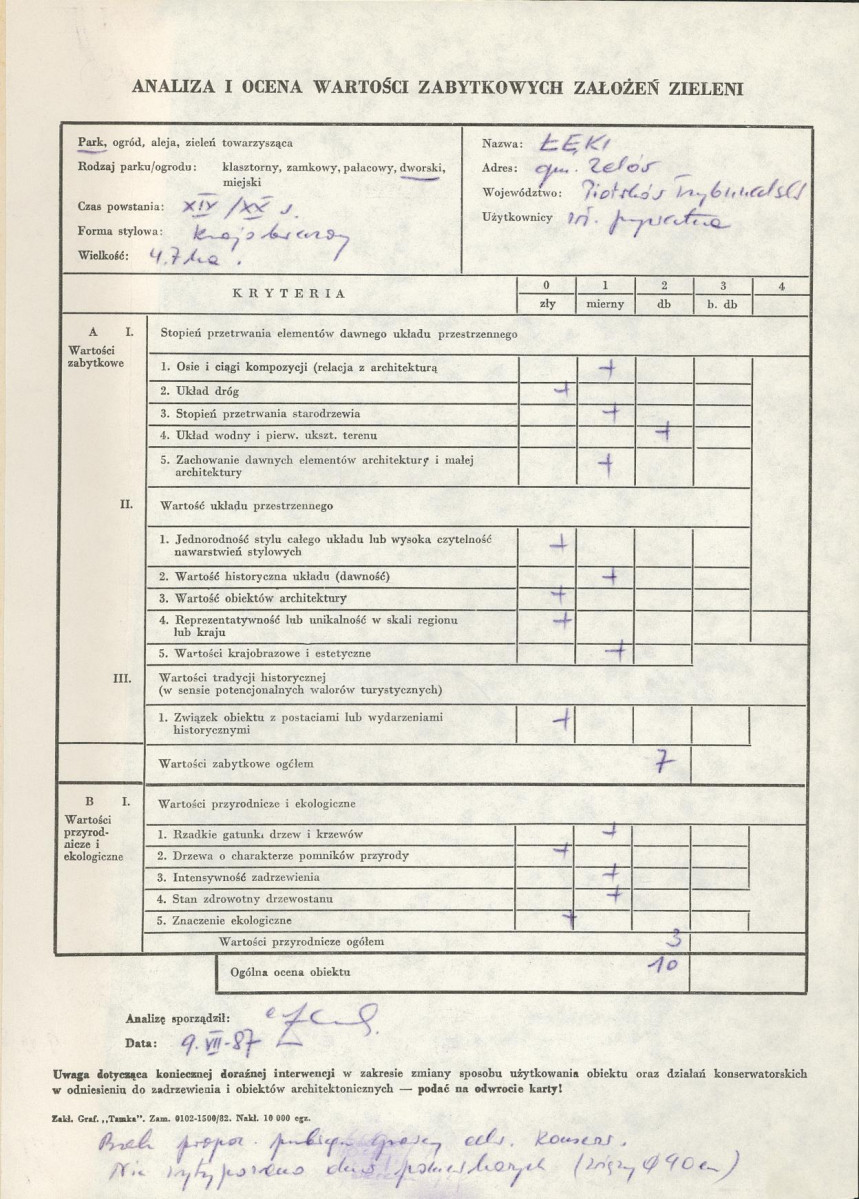 ANALIZA I OCENA WARTOŚCI ZABYTKOWYCH ZAŁOŻEŃ ZIELENI
Park, ogród, aleja, zieleń towarzysząca
Rodzaj parku/ogrodu: klasztorny, zamkowy, pałacowy, dworski,
miejski
Czas powstania: XIX/XX s.
Forma stylowa: krajobrazowy
Wielkość: 4.7 ha.
Nazwa: ŁĘKI
Adres: gm. Zelów
Województwo: Piotrków Trybunalski
Użytkownicy wł. prywatna
KRYTERIA
0 1 2 3 4
zły mierny db b. db
A I. Stopień przetrwania elementów dawnego układu przestrzennego
Wartości
zabytkowe
1. Osie i ciągi kompozycji (relacja z architekturą +
2. Układ dróg +
3. Stopień przetrwania starodrzewia +
4. Układ wodny i pierw. ukszt. terenu +
5. Zachowanie dawnych elementów architektury i małej
architektury +
II. Wartość układu przestrzennego
1. Jednorodność stylu całego układu lub wysoka czytelność
nawarstwień stylowych +
2. Wartość historyczna układu (dawność) +
3. Wartość obiektów architektury +
4. Reprezentatywność lub unikalność w skali regionu
lub kraju +
5. Wartości krajobrazowe i estetyczne +
III. Wartości tradycji historycznej
(w sensie potencjonalnych walorów turystycznych)
1. Związek obiektu z postaciami lub wydarzeniami
historycznymi +
Wartości zabytkowe ogółem 7
B I. Wartości przyrodnicze i ekologiczne
Wartości
przyrod-
nicze i
ekologiczne
1. Rzadkie gatunki drzew i krzewów +
2. Drzewa o charakterze pomników przyrody +
3. Intensywność zadrzewienia +
4. Stan zdrowotny drzewostanu +
5. Znaczenie ekologiczne +
Wartości przyrodnicze ogółem 3
Ogólna ocena obiektu 10
Analizę sporządził:
Data: 9.VII-87
Uwaga dotycząca koniecznej doraźnej interwencji w zakresie zmiany sposobu użytkowania obiektu oraz działań konserwatorskich
w odniesieniu do zadrzewienia i obiektów architektonicznych — podać na odwrocie karty!
Zakł. Graf. „Tamka”. Zam. 0102-1500/82. Nakł. 10 000 egz.
Brak propoz.
Nie wytypowano